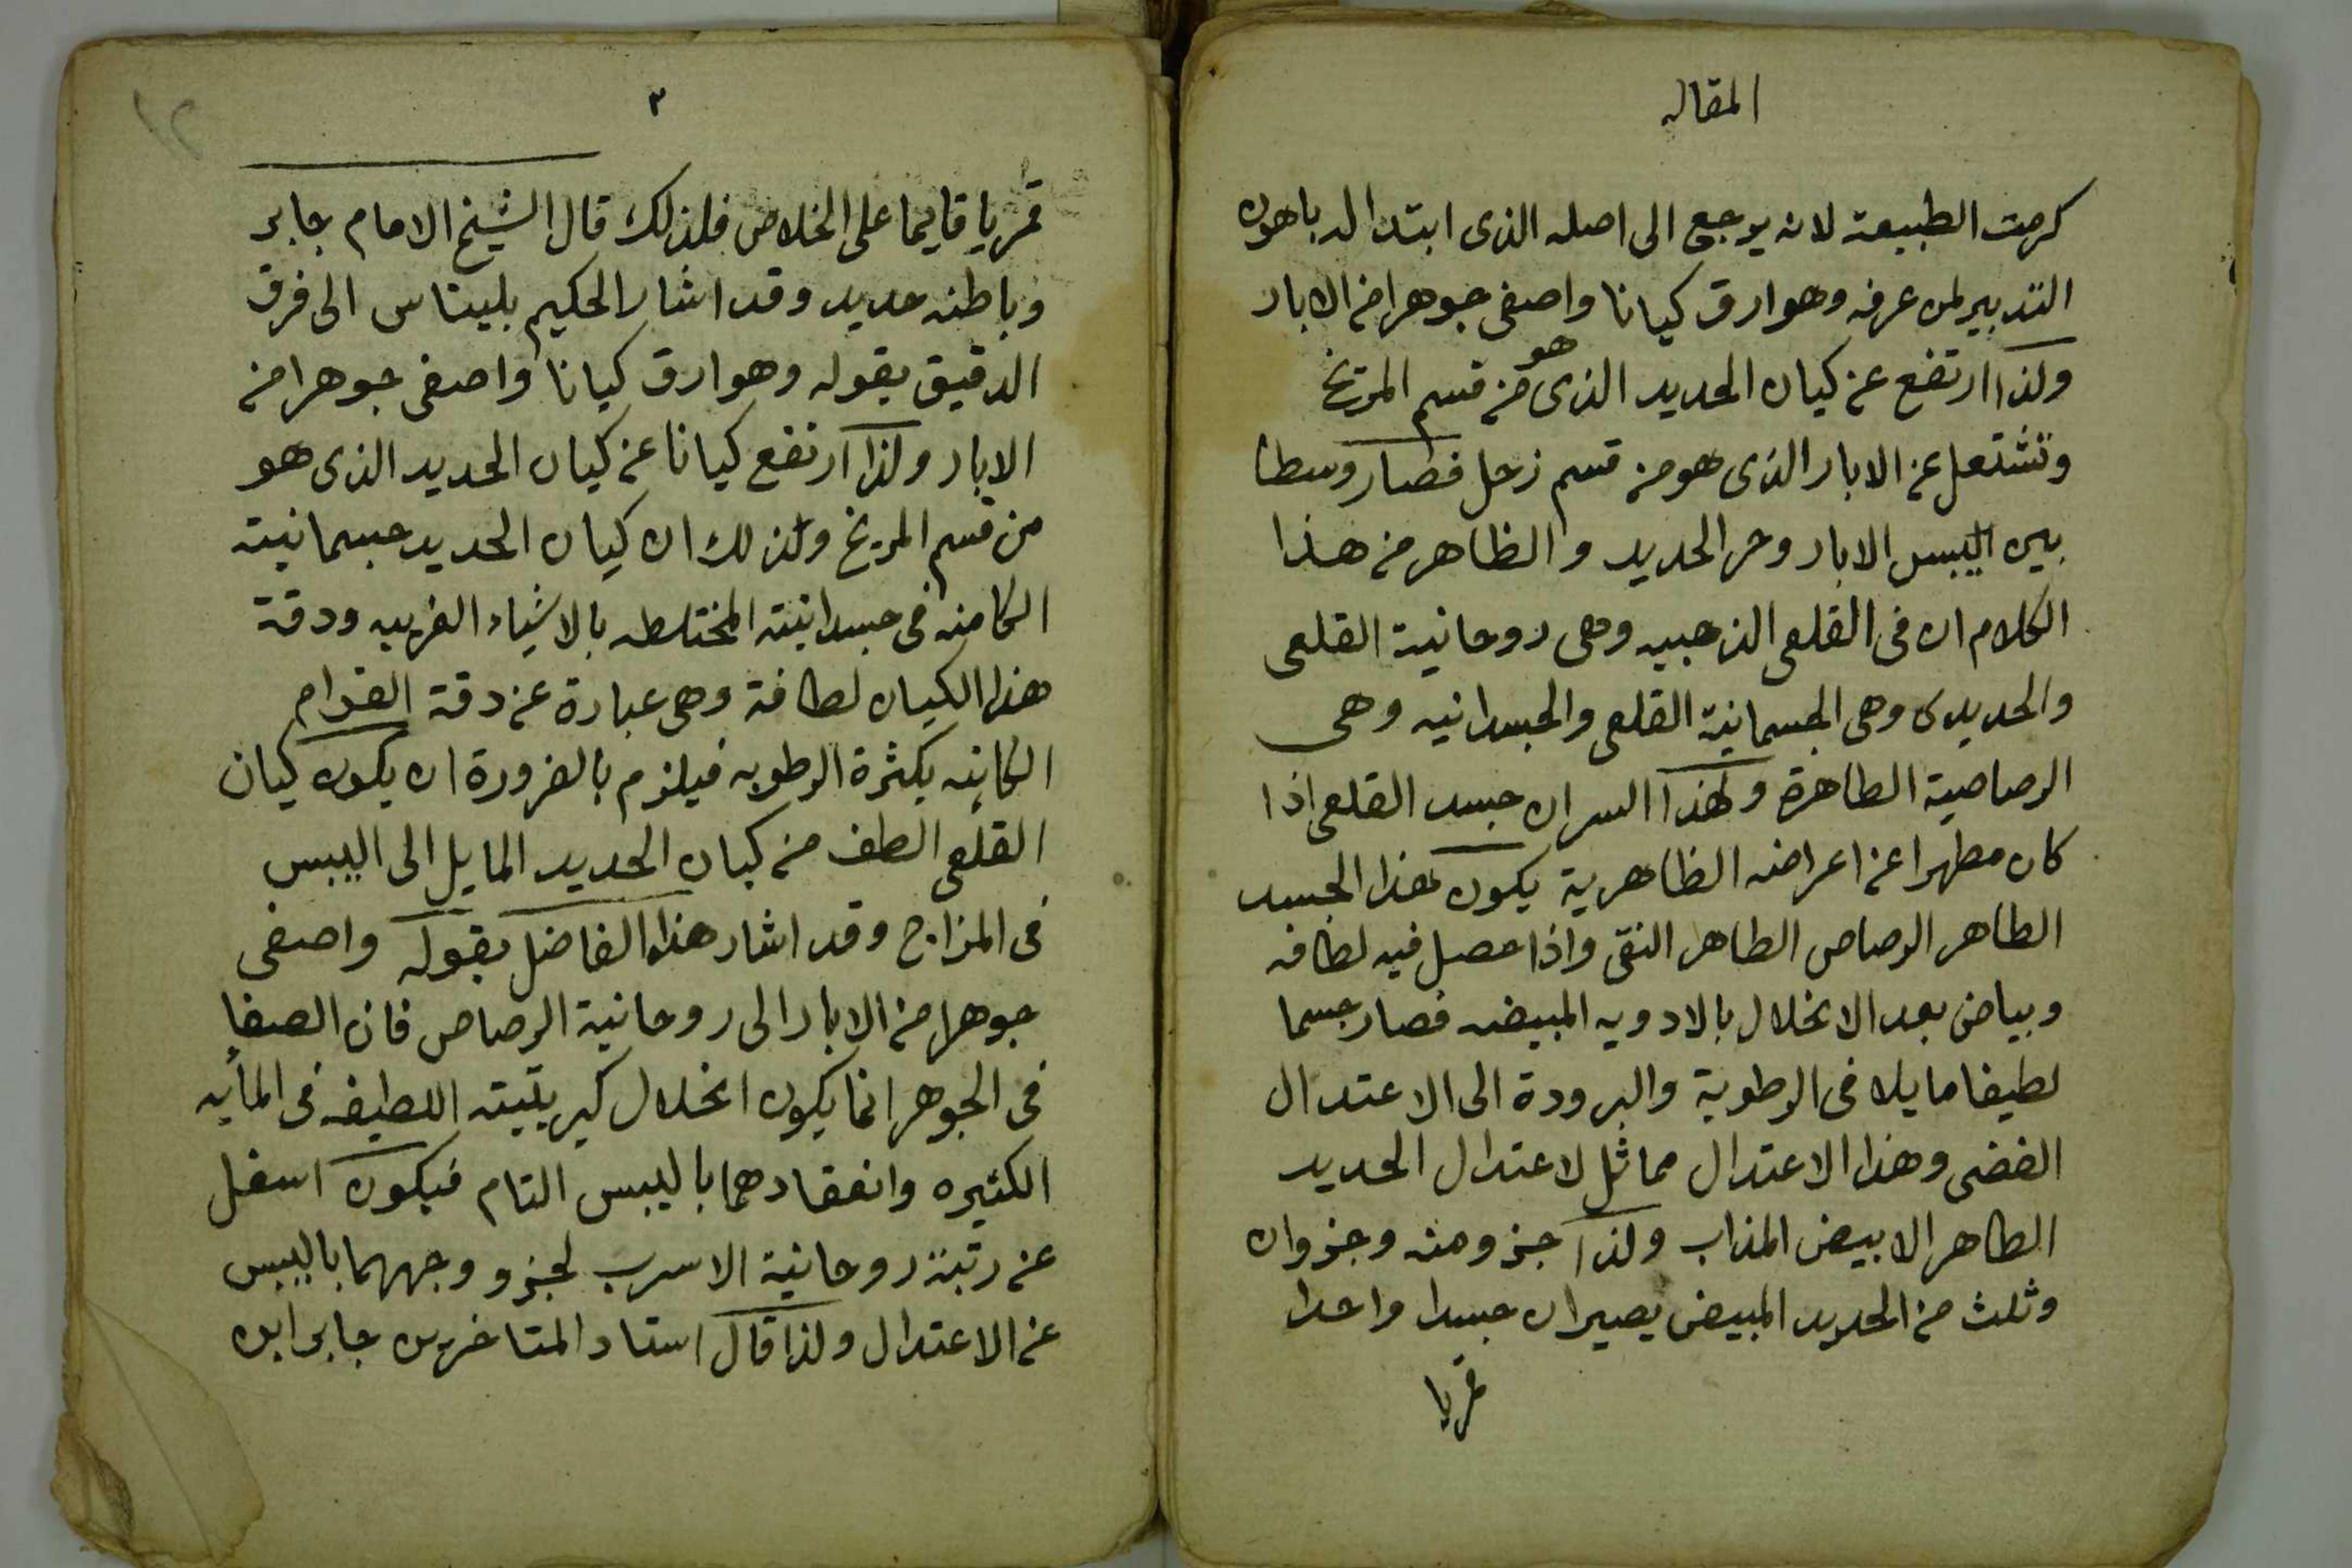 المقاله
كرمت الطبيعة لانه يرجع الى اصله الذى ابتدا اله باهون
التدبير لمن عرفه وهو ارق كيانا واصفى جوهرا من الابار
ولذا ارتفع عن كيان الحديد الذى هو من قسم المريخ
وتشتعل عن الابار الذى هو من قسم زحل فصار وسطا
بين اليبس الابار وحر الحديد والظاهر من هذا
الكلام ان فى القلعى الذهبيه وهى روحانية القلعى
والحديدى وهى الجسمانية القلعى والجسدانيه وهى
الرصاصية الطاهرة ولهذا السر ان جسد القلعى اذا
كان مطهرا عن اعراضه الظاهرية يكون هذا الجسد
الطاهر الرصاص الطاهر النقى واذا حصل فيه لطافه
وبياض بعد الانحلال بالادويه المبيضه فصار جسما
لطيفا مايلا فى الرطوبة والبرودة الى الاعتدال
الفضى وهذا الاعتدال مماثل لاعتدال الحديد
الطاهر الابيض المذاب ولذا جزو منه وجزوان
وثلث من الحديد المبيض يصيران جسدا واحدا
قمريا
٣
١٢
قمريا قايما على الخلاص فلذلك قال الشيخ الامام جابر
وباطنه حديد وقد اشار الحكيم بليناس الى فرق
الدقيق بقوله وهو ارق كيانا واصفى جوهرا من
الابار ولذا ارتفع كيانا عن كيان الحديد الذى هو
من قسم المريخ ولذلك ان كيان الحديد جسمانيته
الكامنه فى جسدانيته المختلطه بالاشياء الغريبه ودقة
هذا الكيان لطافة وهى عبارة عن دقة القوام
الكاينه بكثرة الرطوبه فيلزم بالضرورة ان يكون كيان
القلعى الطف من كيان الحديد المايل الى اليبس
فى المزاج وقد اشار هذا الفاضل بقوله واصفى
جوهرا من الابار الى روحانية الرصاص فان الصفا
فى الجوهر انما يكون انحلال كبريتيته اللطيفه فى المائيه
الكثيره وانعقادهما باليبس التام فيكون اسفل
عن رتبة روحانية الاسرب لجزو وجهما باليبس
عن الاعتدال ولذا قال استاد المتاخرين جابر ابن